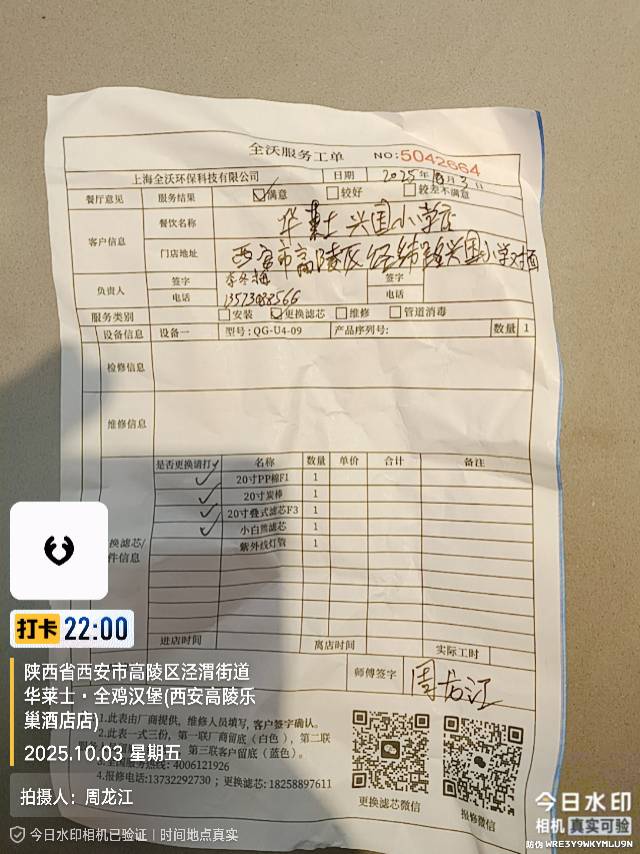 全沃服务工单 NO:5042664
上海全沃环保科技有限公司 日期 2025年10月3日
餐厅意见 服务结果 ☑满意 □较好 □较差不满意
客户信息 餐饮名称 华莱士兴国小学店
门店地址 西安市高陵区经纬路兴国小学对面
负责人 签字 签字
电话 电话
服务类别 □安装 ☑更换滤芯 □维修 □管道消毒
设备信息 设备一 型号:QG-U4-09 产品序列号: 数量 1
检修信息
维修信息
是否更换请打✓ 名称 数量 单价 合计 备注
✓ 20寸PP棉F1 1
✓ 20寸炭棒 1
✓ 20寸叠式滤芯F3 1
✓ 小白熊滤芯 1
紫外线灯管 1
换滤芯/
件信息
进店时间 离店时间 实际工时
师傅签字 周龙江
1.此表由厂商提供，维修人员填写，客户签字确认。
2.此表一式三份，第一联厂商留底（白色），第二联
第三联客户留底（蓝色）。
服务热线：4006121926
4.报修电话:13732292730；更换滤芯:18258897611
更换滤芯微信 报修微信
打卡 22:00
陕西省西安市高陵区泾渭街道
华莱士·全鸡汉堡(西安高陵乐
巢酒店店)
2025.10.03 星期五
拍摄人：周龙江
今日水印相机已验证 | 时间地点真实
今日水印
相机 真实可验
防伪 WRE3Y9WKYMLU9N